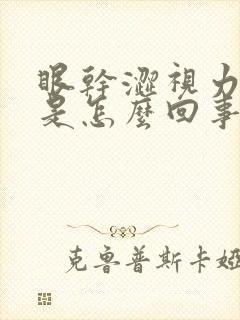 眼幹澀視力
是怎麼回事
克魯普斯卡婭